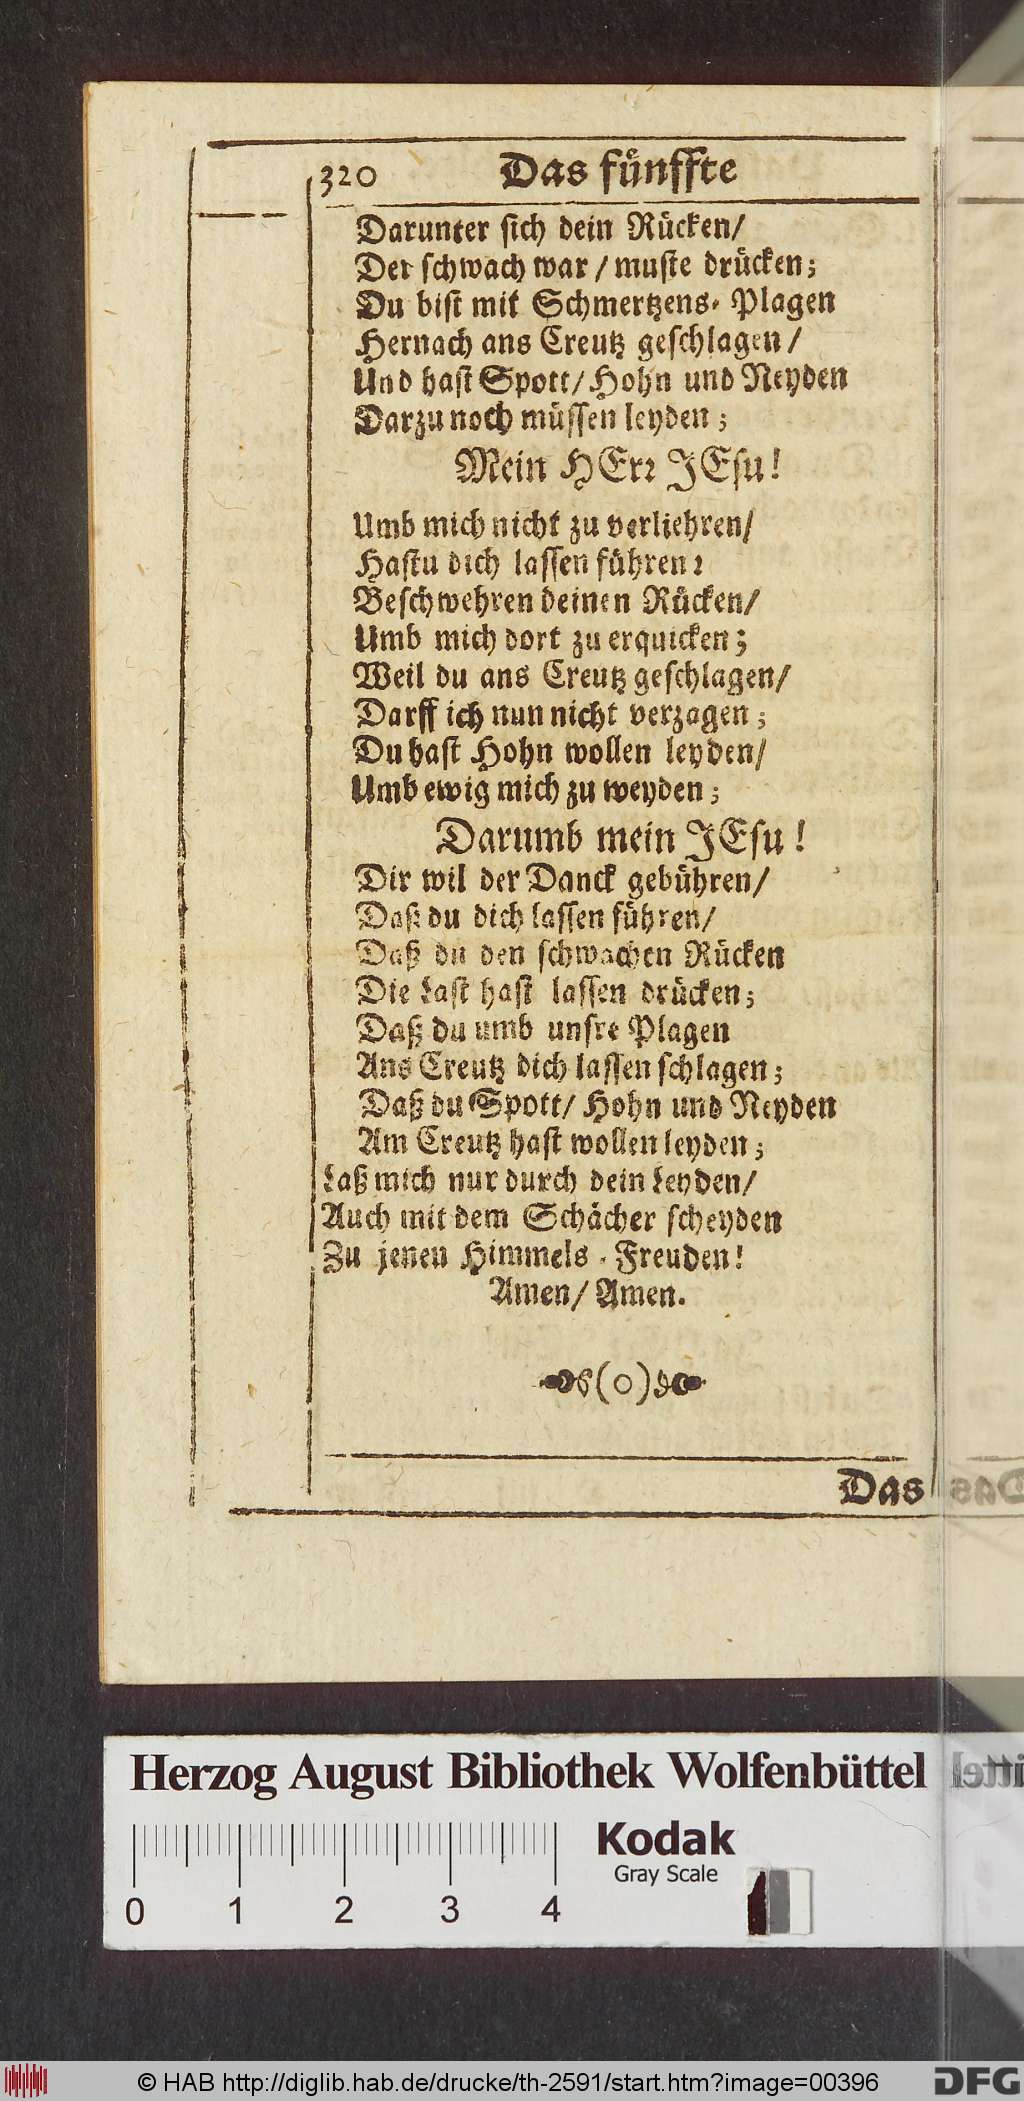 320 Das fünffte
Darunter sich dein Rücken/
Der schwach war / muste drücken;
Du bist mit Schmertzens-Plagen
Hernach ans Creutz geschlagen /
Und hast Spott/ Hohn und Neyden
Darzu noch müssen leyden;
Mein HErr JEsu!
Umb mich nicht zu verliehren/
Hastu dich lassen führen:
Beschwehren deinen Rücken/
Umb mich dort zu erquicken;
Weil du ans Creutz geschlagen/
Darff ich nun nicht verzagen;
Du hast Hohn wollen leyden/
Umb ewig mich zu weyden;
Darumb mein JEsu!
Dir wil der Danck gebühren/
Daß du dich lassen führen/
Daß du den schwachen Rücken
Die Last hast lassen drücken;
Daß du umb unsre Plagen
Ans Creutz dich lassen schlagen;
Daß du Spott/ Hohn und Neyden
Am Creutz hast wollen leyden;
Laß mich nur durch dein Leyden/
Auch mit dem Schächer scheyden
Zu jenen Himmels-Freuden!
Amen/ Amen.
(0)
Das
Herzog August Bibliothek Wolfenbüttel
Kodak
Gray Scale
0 1 2 3 4
© HAB http://diglib.hab.de/drucke/th-2591/start.htm?image=00396
DFG